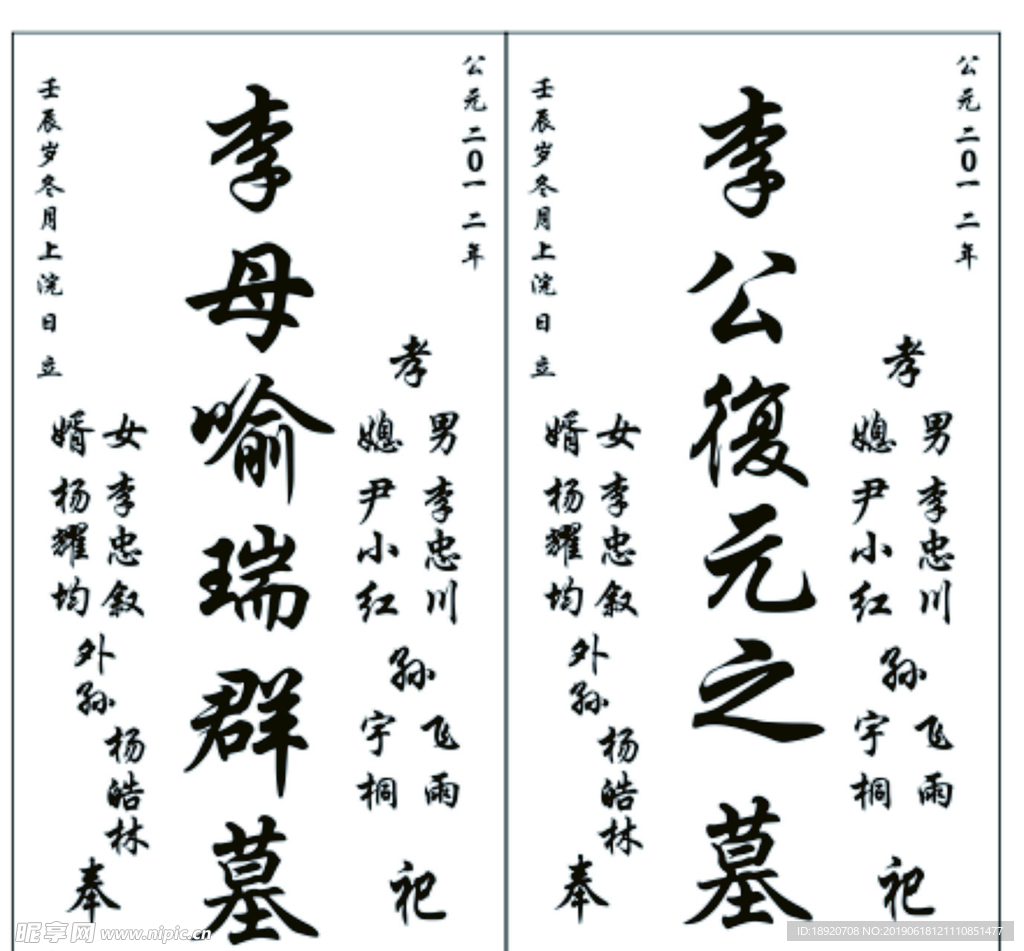 公元二0一二年
孝
男李忠川
媳尹小红
孙
飞雨
宇桐
祀
李公復元之墓
女李忠叙
婿杨耀均
外孙
杨皓林
奉
壬辰岁冬月上浣日立
公元二0一二年
孝
男李忠川
媳尹小红
孙
飞雨
宇桐
祀
李母喻瑞群墓
女李忠叙
婿杨耀均
外孙
杨皓林
奉
壬辰岁冬月上浣日立
昵享网 www.nipic.cn
ID:18920708 NO:20190618121110851477